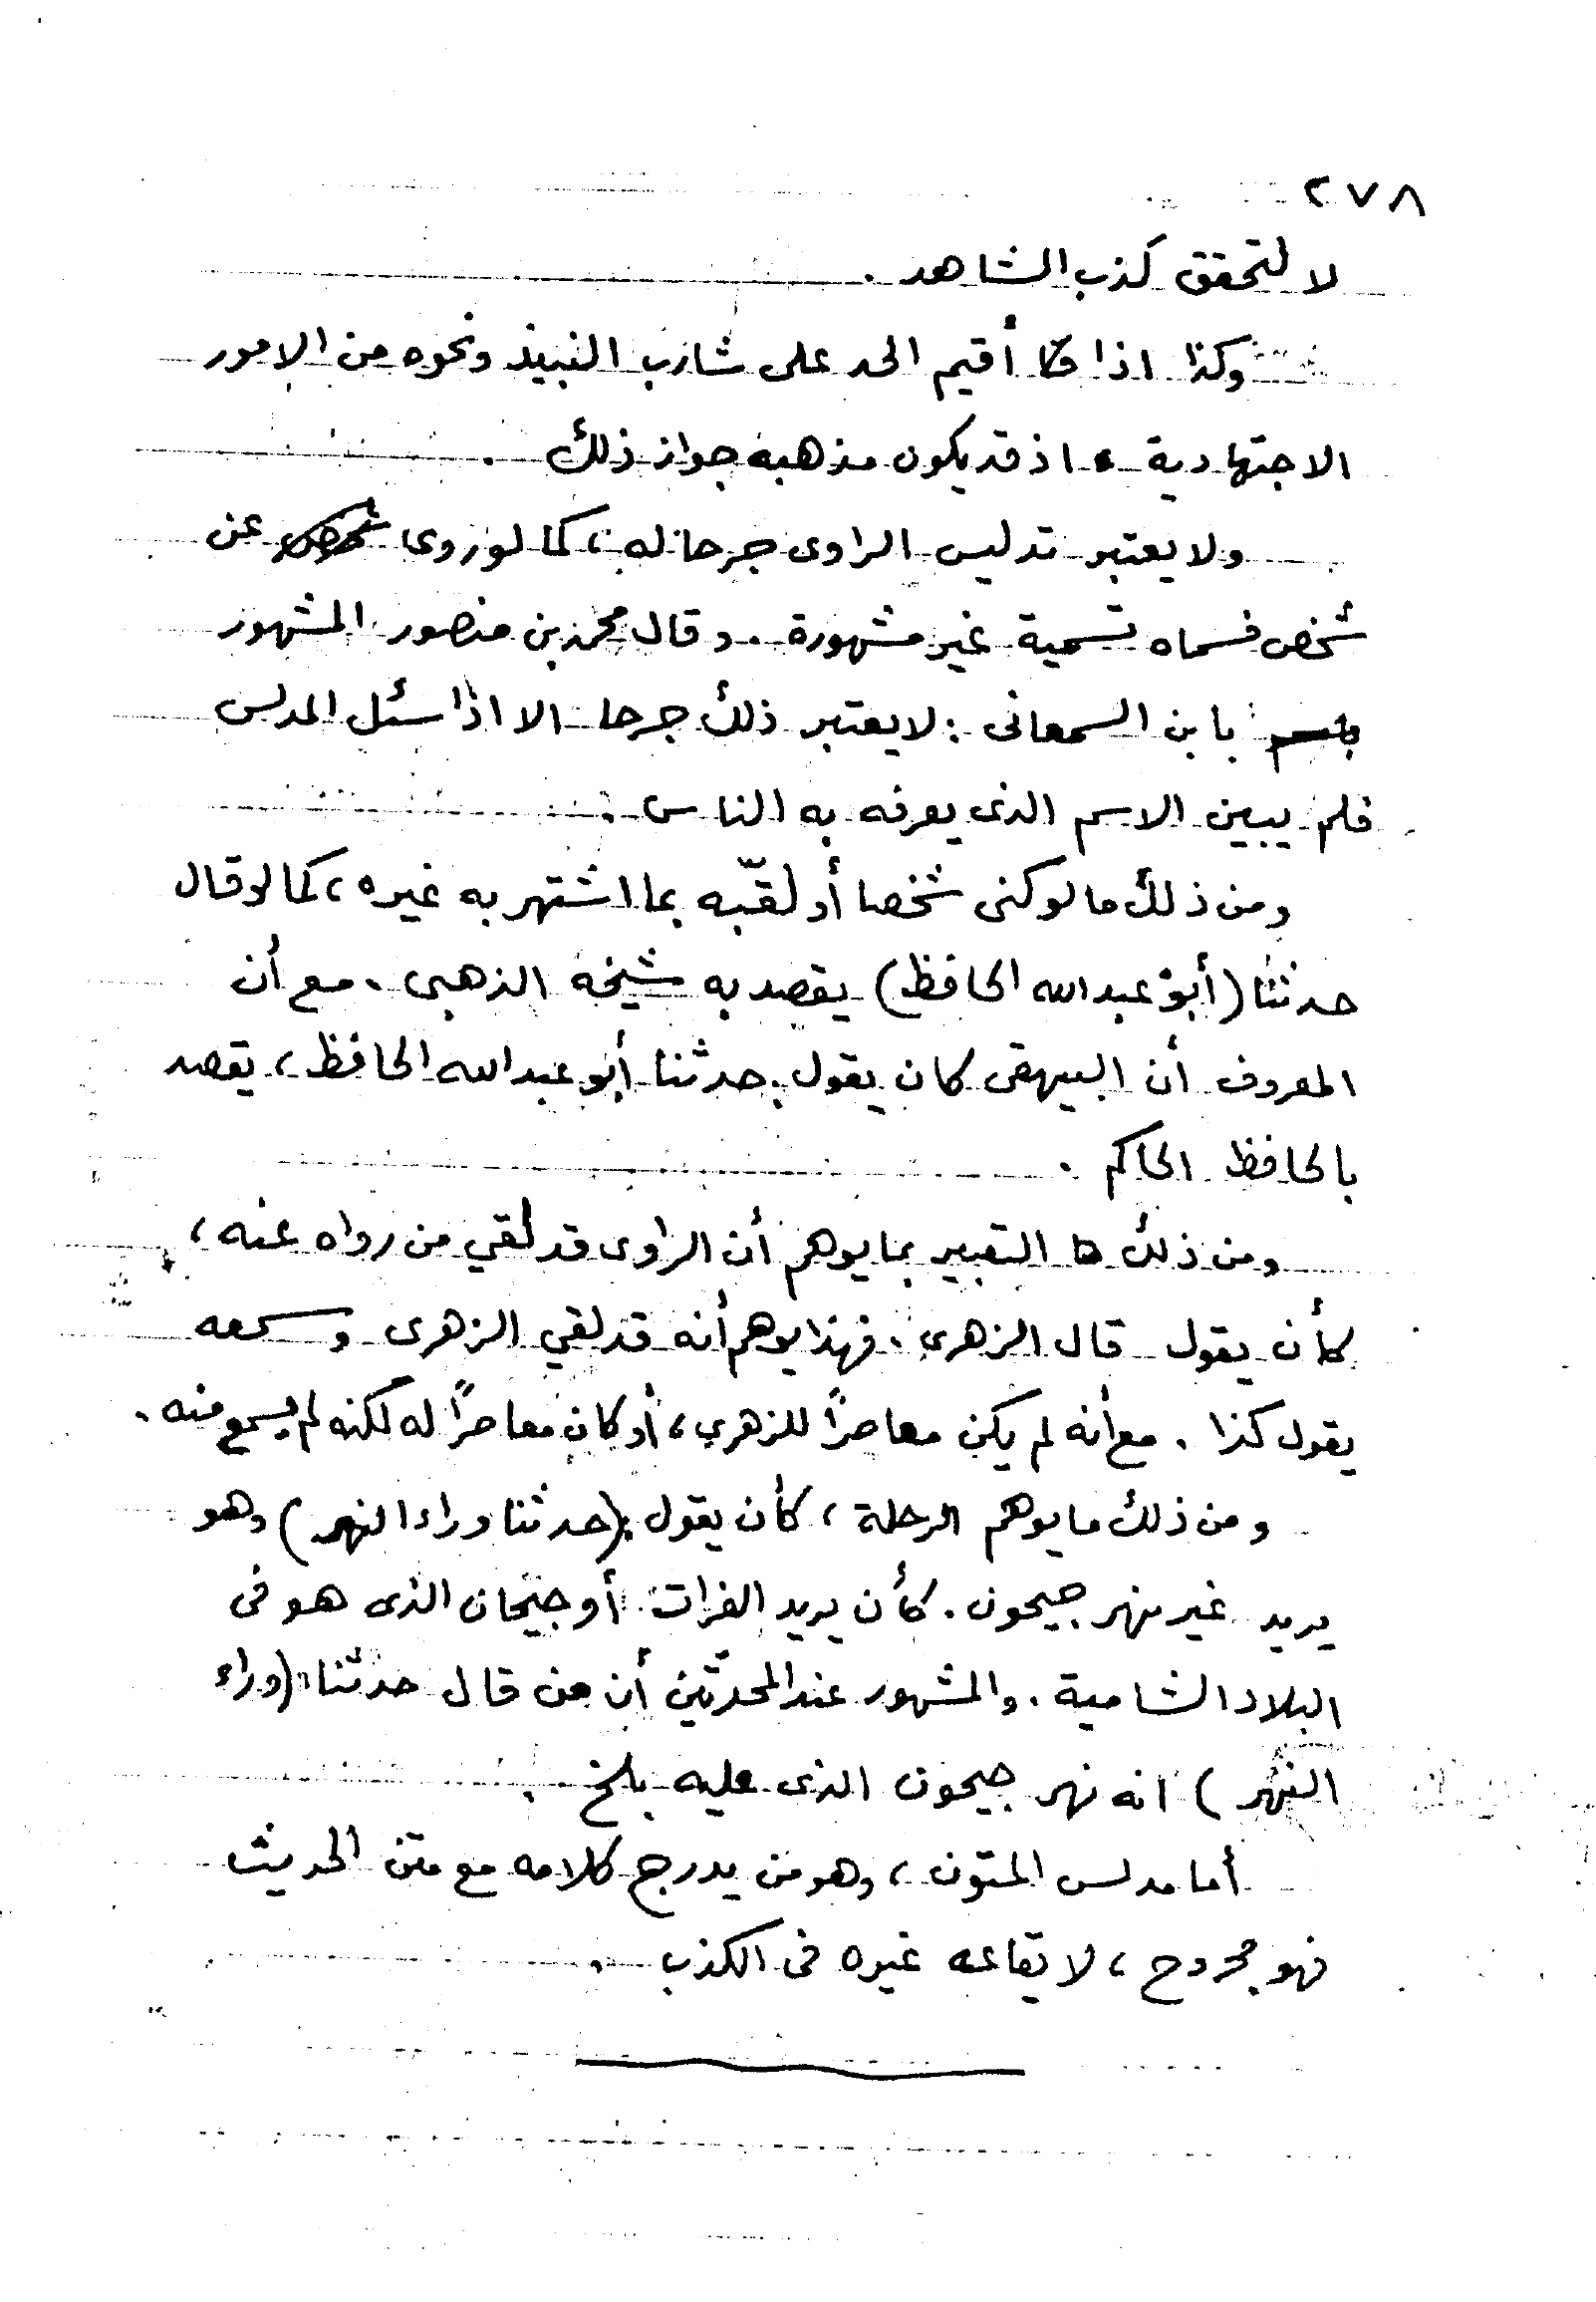 ٢٧٨
لا لتحقق كذب الشاهد .
وكذا اذا أقيم الحد على شارب النبيذ ونحوه من الامور
الاجتهادية ، اذ قد يكون مذهبه جواز ذلك .
ولا يعتبر تدليس الراوى جرحا له ، كما لو روى عن
شخص فسماه تسمية غير مشهورة . وقال محمد بن منصور المشهور
بابن السمعانى : لا يعتبر ذلك جرحا الا اذا سئل المدلس
فلم يبين الاسم الذى يعرفه به الناس .
ومن ذلك ما لو كنى شخصا أو لقّبه بما اشتهر به غيره ، كما لو قال
حدثنا (أبو عبد الله الحافظ) يقصد به شيخه الذهبى . مع أن
المعروف أن البيهقى كان يقول : حدثنا أبو عبد الله الحافظ ، يقصد
بالحافظ الحاكم .
ومن ذلك التعبير بما يوهم أن الراوى قد لقي من رواه عنه ،
كأن يقول قال الزهرى . فهذا يوهم أنه قد لقي الزهرى وسمعه
يقول كذا . مع أنه لم يكن معاصرًا للزهري ، أو كان معاصرًا له لكنه لم يسمع منه .
ومن ذلك ما يوهم الرحلة ، كأن يقول : (حدثنا وراء النهر) وهو
يريد غير نهر جيحون . كأن يريد الفرات أو جيحان الذى هو فى
البلاد الشامية . والمشهور عند المحدّثين أن من قال حدثنا (وراء
النهر) انه نهر جيحون الذى عليه بلخ .
أما مدلس المتون ، وهو من يدرج كلامه مع متن الحديث
فهو مجروح ، لا يقاعه غيره فى الكذب .